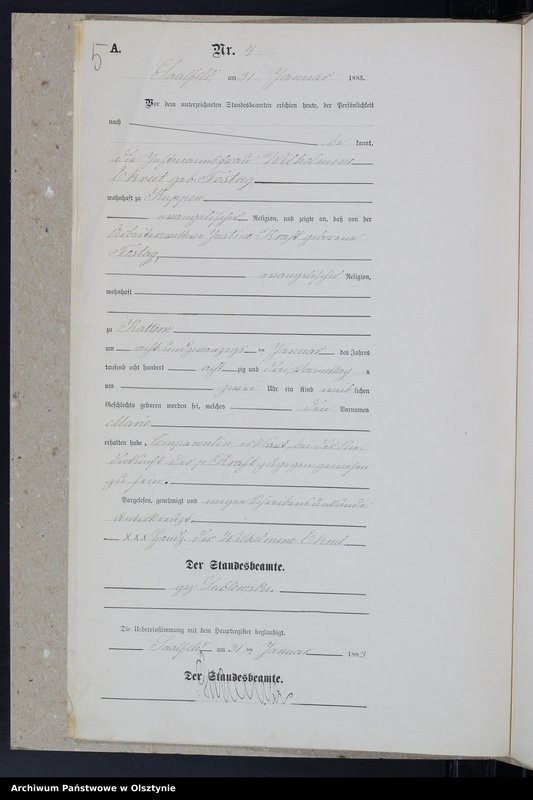 5 A.
Nr. 4
Saalfeld, am 31. Januar 1883.
Vor dem unterzeichneten Standesbeamten erschien heute, der Persönlichkeit
nach
be kannt,
die Wilhelmine
geb.
wohnhaft zu Kuppen
evangelischer Religion, und zeigte an, daß von der
Justine Kraft geborene
evangelischer Religion,
wohnhaft
zu
am acht und zwanzigs ten Januar des Jahres
tausend acht hundert acht zig und drei, s
um zwei Uhr ein Kind weib lichen
Geschlechts geboren worden sei, welches den Vornamen
Marie
erhalten habe. Comparentin erklärt, bei der Nie-
derkunft der p. Kraft zugegen gewesen
zu sein.
Vorgelesen, genehmigt und wegen Schreibensunkunde
unterkreuzt.
x x x Handz. der Wilhelmine
Der Standesbeamte.
gez.
Die Uebereinstimmung mit dem Hauptregister beglaubigt.
Saalfeld, am 31 ten Januar 1883
Der Standesbeamte.
Archiwum Państwowe w Olsztynie